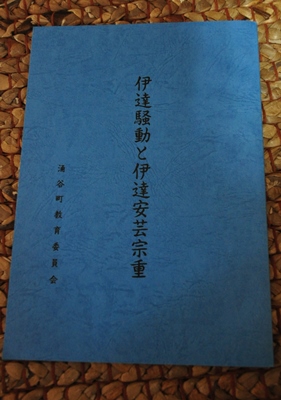 伊達騒動と伊達安芸宗重
涌谷町教育委員会